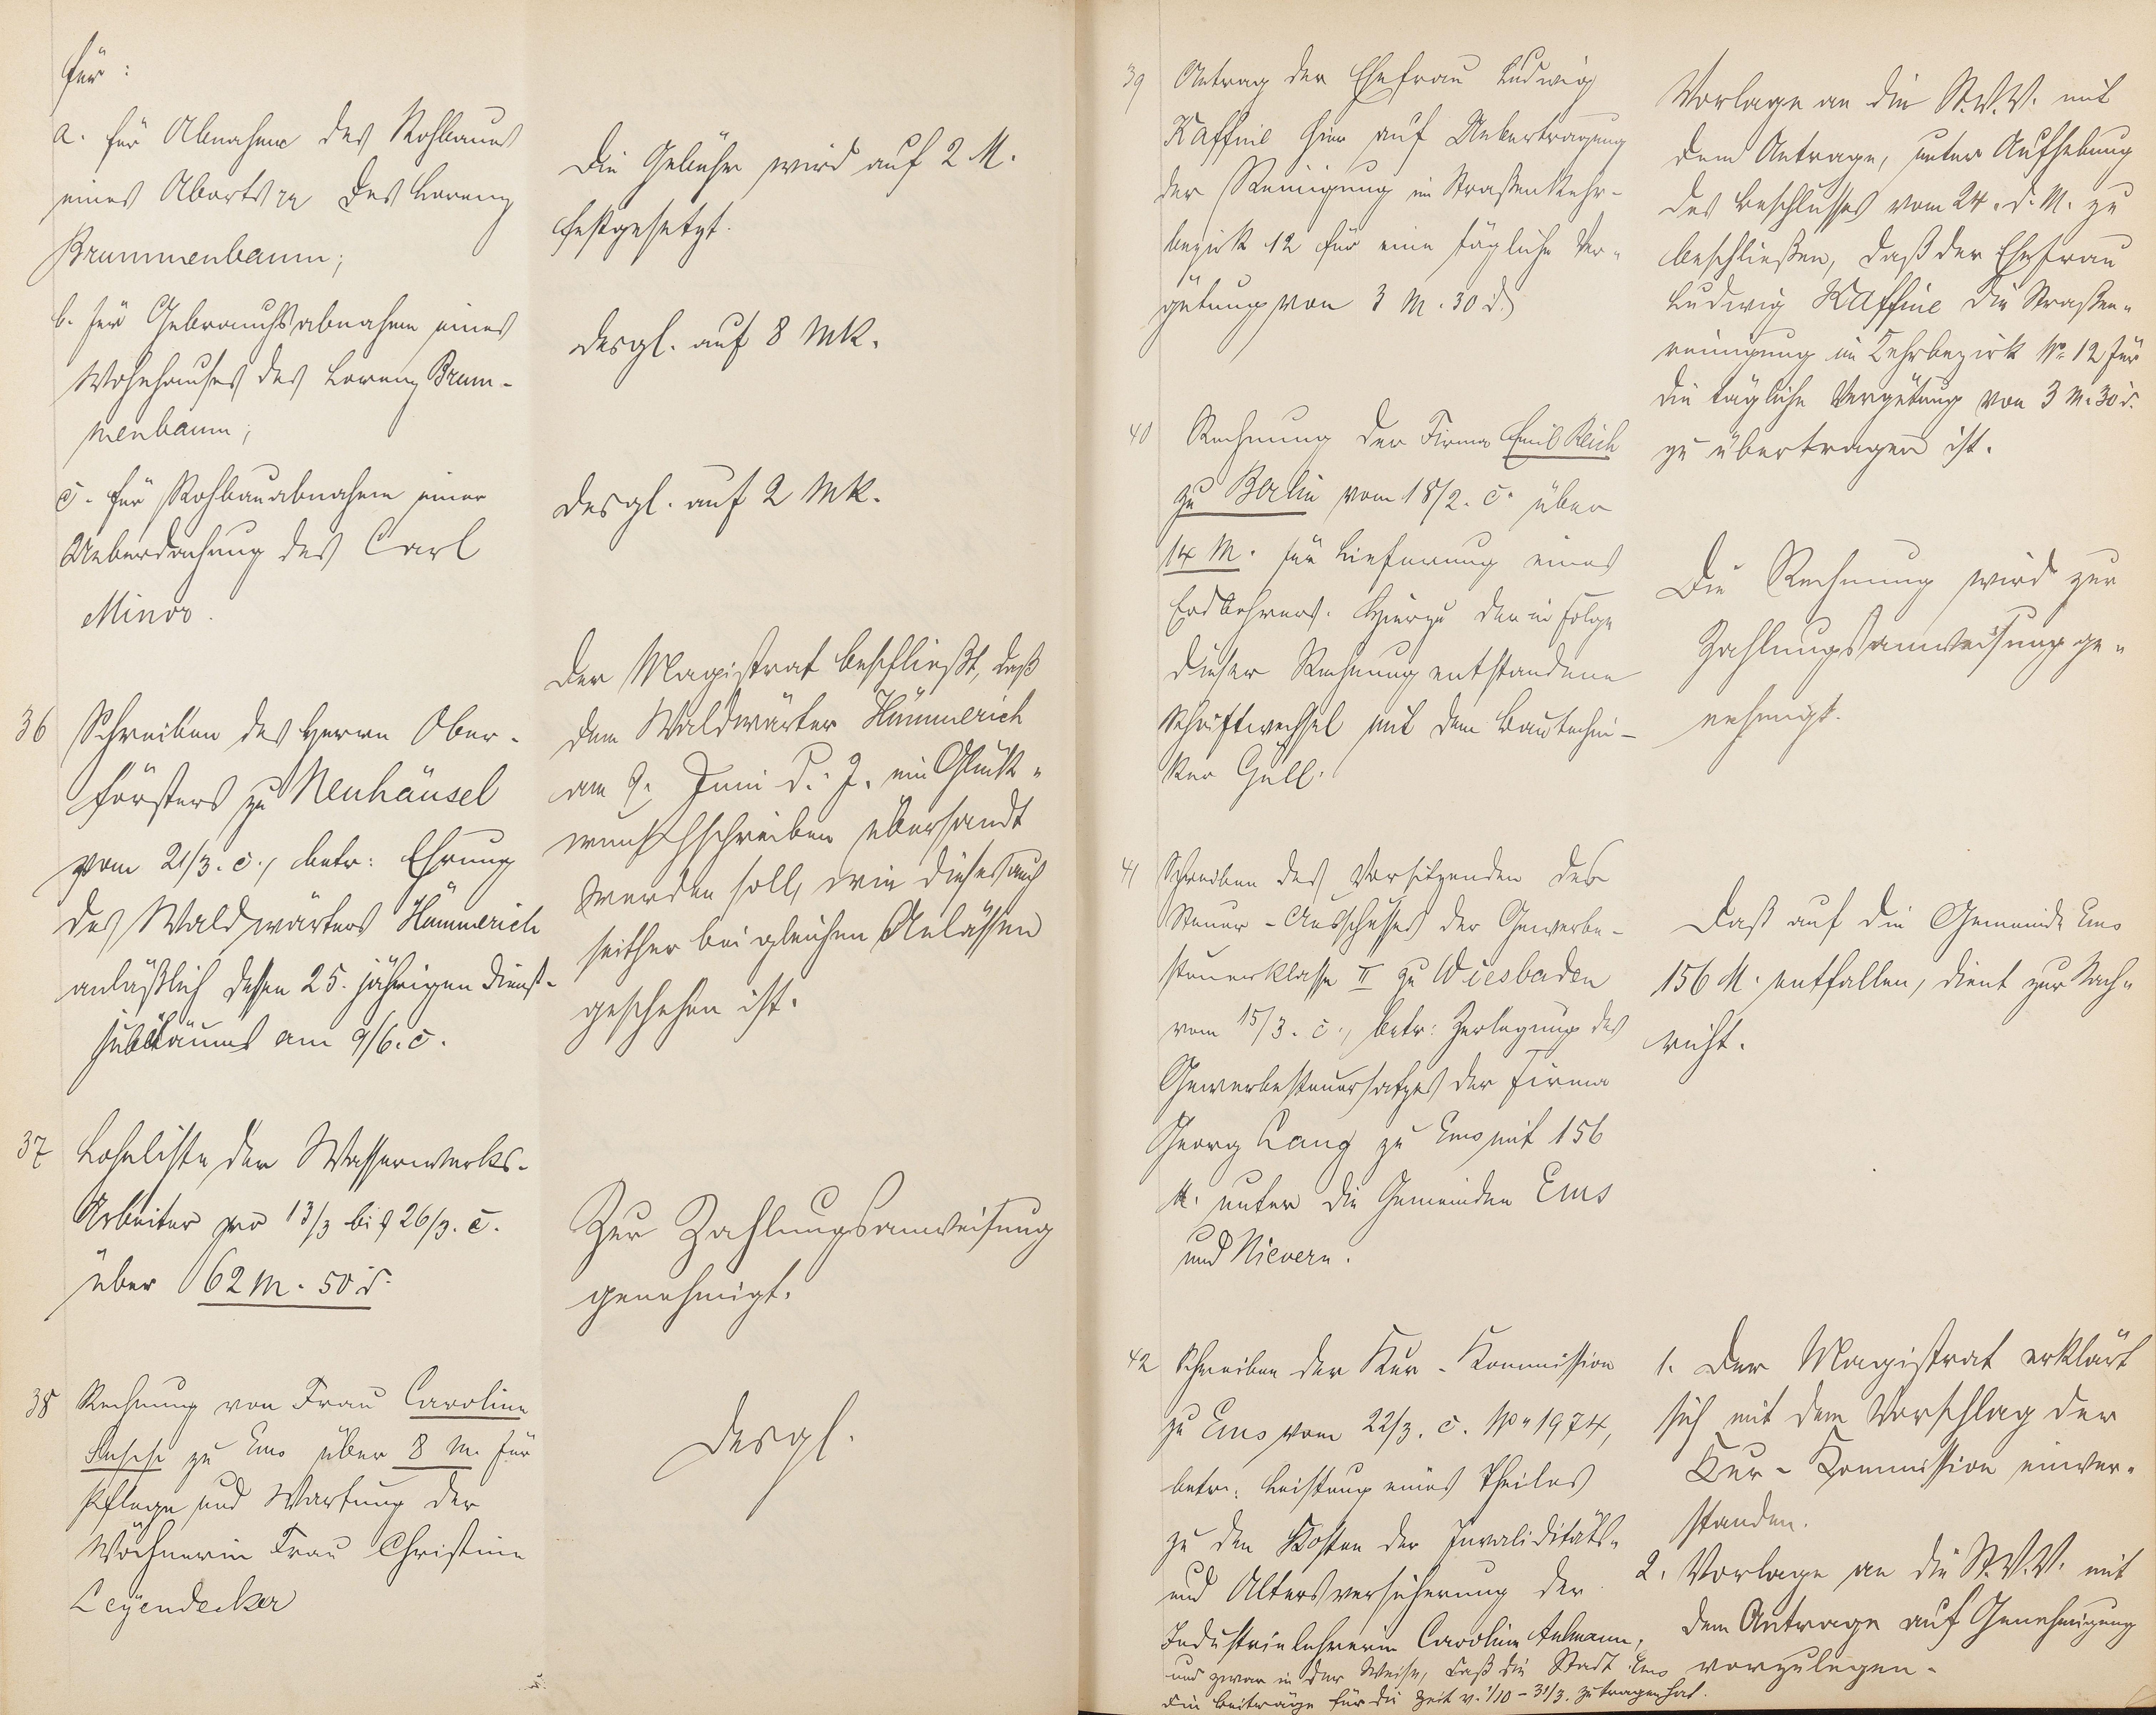 für:
a. für Abnahme des Rohbaues
eines Aborts des Lorenz
Brummenbaum;
b. für Gebrauchsabnahme eines
Wohnhauses des Lorenz Brum-
menbaum;
c. für Rohbauabnahme einer
Ueberdachung des Carl
Minor.
Die Gebühr wird auf 2 M.
festgesetzt.
desgl. auf 8 Mk.
desgl. auf 2 Mk.
36 Schreiben des Herrn Ober-
försters zu Neuhäusel
vom 21/3. c., betr: Ehrung
des Waldwärters Hümmerich
anläßlich dessen 25. jährigen Dienst-
jubiläums am 9/6. c.
Der Magistrat beschließt, daß
dem Waldwärter Hümmerich
am 9. Juni d. J. ein Glück-
wunschschreiben übersandt
werden soll, wie dieses auch
seither bei gleichen Anlässen
geschehen ist.
37 Lohnliste der Wasserwerks-
Arbeiter pro 13/3 bis 26/3. c.
über 62 M. 50 d.
Zur Zahlungsanweisung
genehmigt.
38 Rechnung von Frau Caroline
zu Ems über 8 M. für
Pflege und Wartung der
Wöchnerin Frau Christine
Leyendecker
desgl.
39 Antrag der Ehefrau Ludwig
Kaffine hier auf Uebertragung
der Reinigung im Straßenkehr-
bezirk 12 für eine tägliche Ver-
gütung von 3 M. 30 d.
Vorlage an die St.V.V. mit
dem Antrage, unter Aufhebung
des Beschlusses vom 24. d. M. zu
beschließen, daß der Ehefrau
Ludwig Kaffine die Straßen-
reinigung im Kehrbezirk No. 12 für
die tägliche Vergütung von 3 M. 30 d.
zu übertragen ist.
40 Rechnung der Firma Emil Reich
zu Berlin vom 18/2. c. über
14 M. für Lieferung eines
Erdbohrers. Hierzu der in Folge
dieser Rechnung entstandene
Schriftwechsel mit dem Bautechni-
ker Güll.
Die Rechnung wird zur
Zahlungsanweisung ge-
nehmigt.
41 Schreiben des Vorsitzenden des
Steuer-Ausschusses der Gewerbe-
steuerklasse II zu Wiesbaden
vom 15/3. c., betr: Zerlegung des
Gewerbesteuersatzes der Firma
Georg Lang zu Ems mit 156
M. unter die Gemeinden Ems
und Nievern.
Daß auf die Gemeinde Ems
156 M. entfallen, dient zur Nach-
richt.
42 Schreiben der Kur-Kommission
zu Ems vom 22/3. c. No. 1974,
betr: Leistung eines Theiles
zu den Kosten der Invaliditäts-
und Altersversicherung der
Industrielehrerin Caroline
und zwar in der Weise, daß die Stadt Ems
die Beiträge für die Zeit v. 1/10 - 31/3. zu tragen hat.
1. Der Magistrat erklärt
sich mit dem Vorschlag der
Kur-Kommission einver-
standen.
2. Vorlage an die St.V.V. mit
dem Antrage auf Genehmigung
vorzulegen.